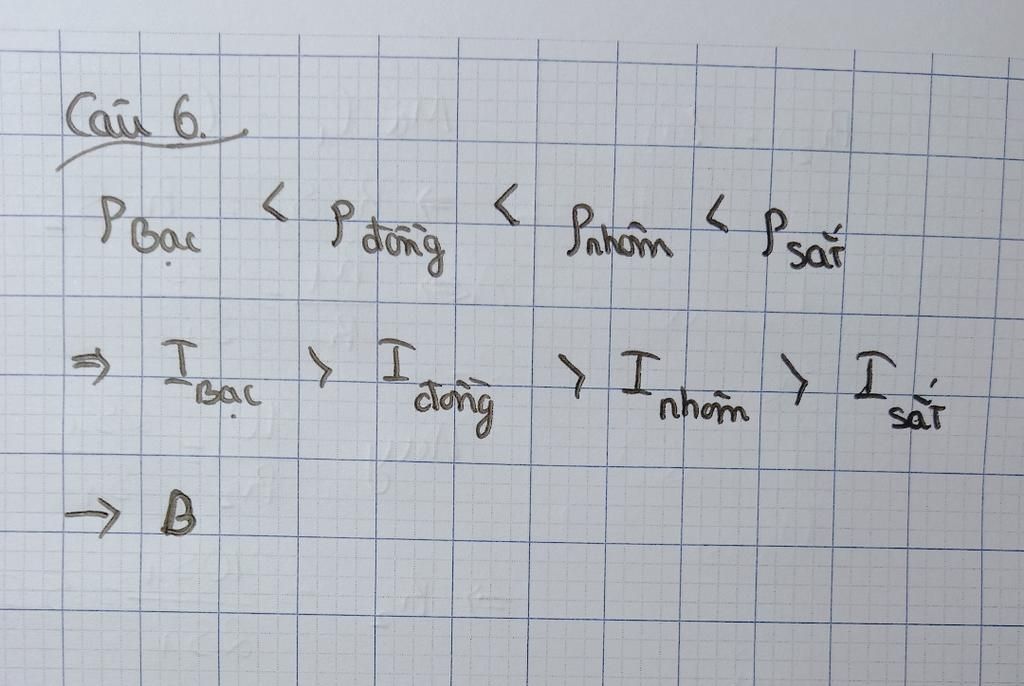 Câu 6.
ρ Bạc < ρ đồng < ρ nhôm < ρ sắt
⇒ I Bạc > I đồng > I nhôm > I sắt
→ B